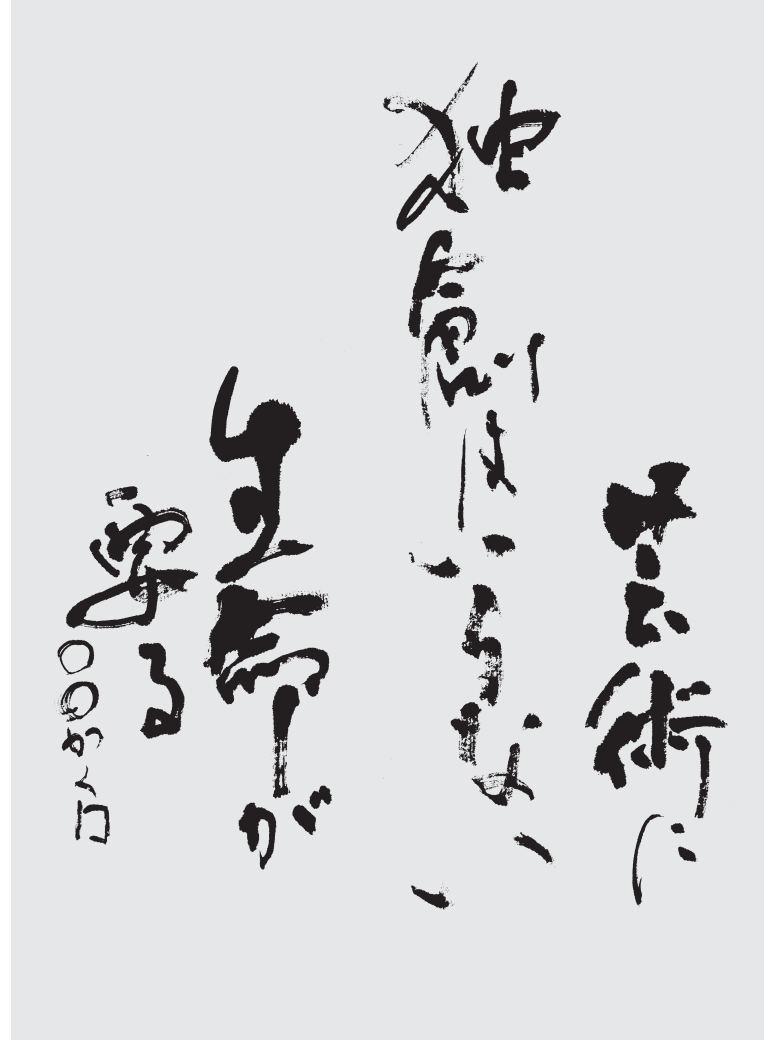 芸術に
独創はいらない
生命が
要る